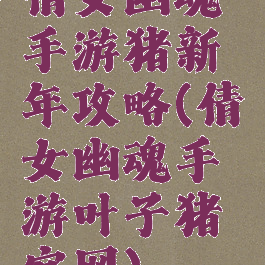 倩女幽魂
手游猪新
年攻略(倩
女幽魂手
游叶子猪
官网)